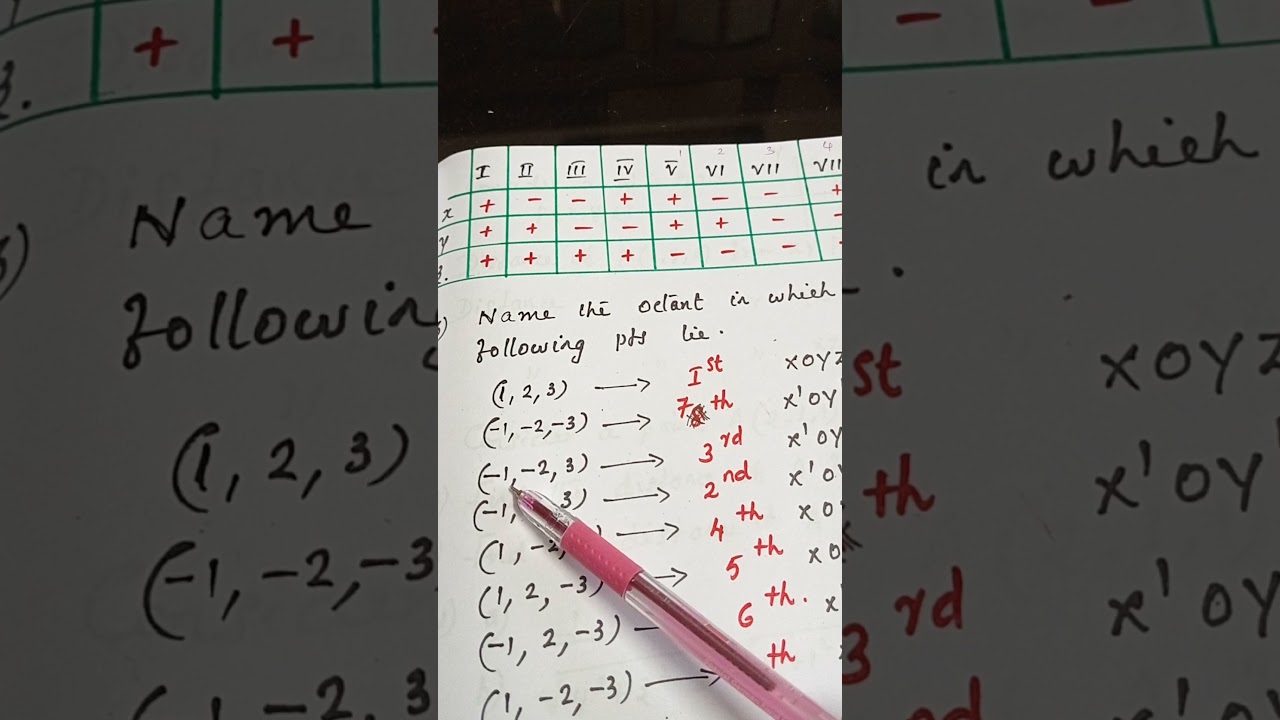 1 2 3 4
I II III IV V VI VII VIII
x + - - + + - - +
y + + - - + + - -
z. + + + + - - - -
Name the octant in which
following pts lie.
(1, 2, 3) → Ist XOYZ
(-1, -2, -3) → 7th X'OY'
(-1, -2, 3) → 3rd X'OY
(-1, 3) → 2nd X'O
(1, -2, → 4th XO
(1, 2, -3) → 5th XO
(-1, 2, -3) → 6th. X'
(1, -2, -3) → th